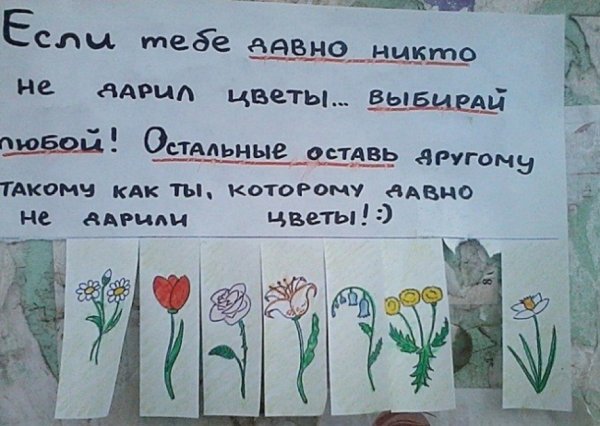 Если тебе давно никто
не дарил цветы... выбирай
любой! Остальные оставь другому
такому как ты, которому давно
не дарили цветы! :)